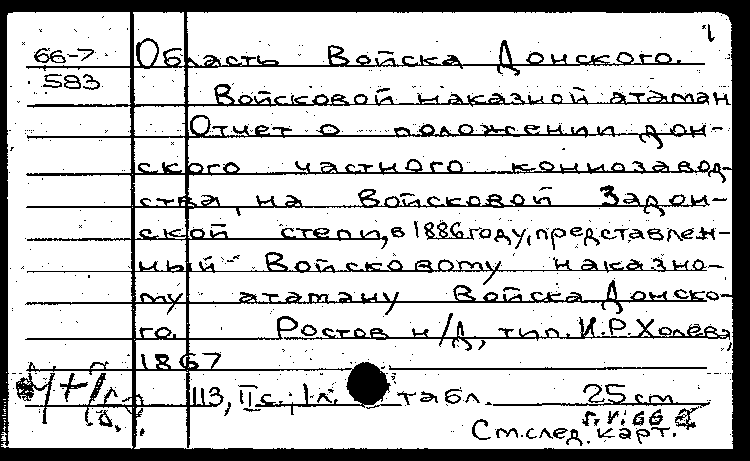 1
66-7
583
Область Войска Донского.
Войсковой наказной атаман
Отчет о положении дон-
ского частного коннозавод-
ства, на Войсковой Задон-
ской степи, в 1886 году, представлен-
ный Войсковому наказно-
му атаману Войска Донско-
го. Ростов н/Д, тип. И.Р.Холева,
1867
113, IIс.; 1л. табл. 25 см
См.след. карт.